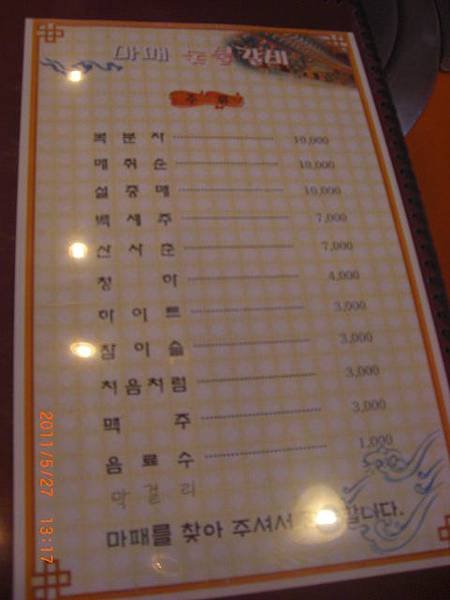 마패 갈비
주류
복분자 10,000
매취순 10,000
설중매 10,000
백세주 7,000
산사춘 7,000
청하 4,000
하이트 3,000
참이슬 3,000
처음처럼 3,000
맥주 3,000
음료수 1,000
막걸리
마패를 찾아 주셔서
2011/5/27 13:17